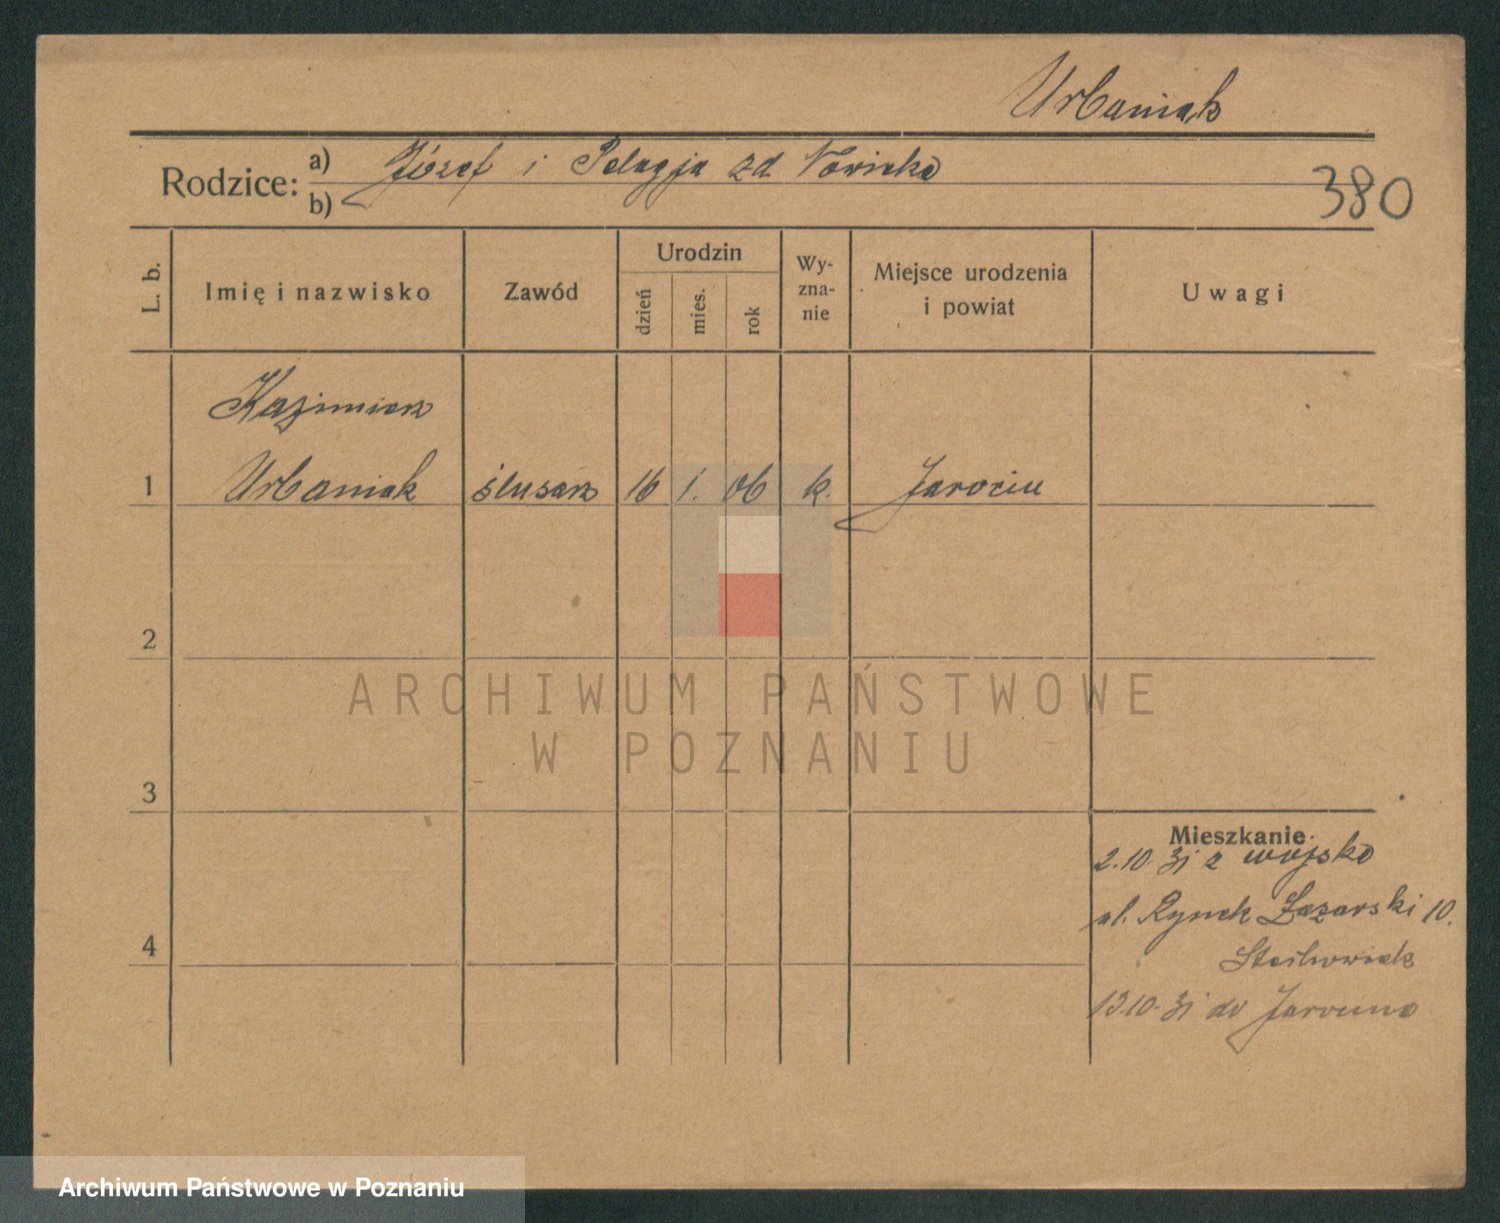 Urbaniak
Rodzice: a) Józef i Pelagja zd Nowicka
b)
380
L. b.
Imię i nazwisko
Zawód
Urodzin
dzień
mies.
rok
Wy-
zna-
nie
Miejsce urodzenia
i powiat
Uwagi
Kazimierz
1 Urbaniak ślusarz 16 1. 06 k. Jarocin
2
ARCHIWUM PAŃSTWOWE
W POZNANIU
3
Mieszkanie
2.10.31 z wojska
ul. Rynek Łazarski 10.
4
13.10.31 do Jarocina
Archiwum Państwowe w Poznaniu